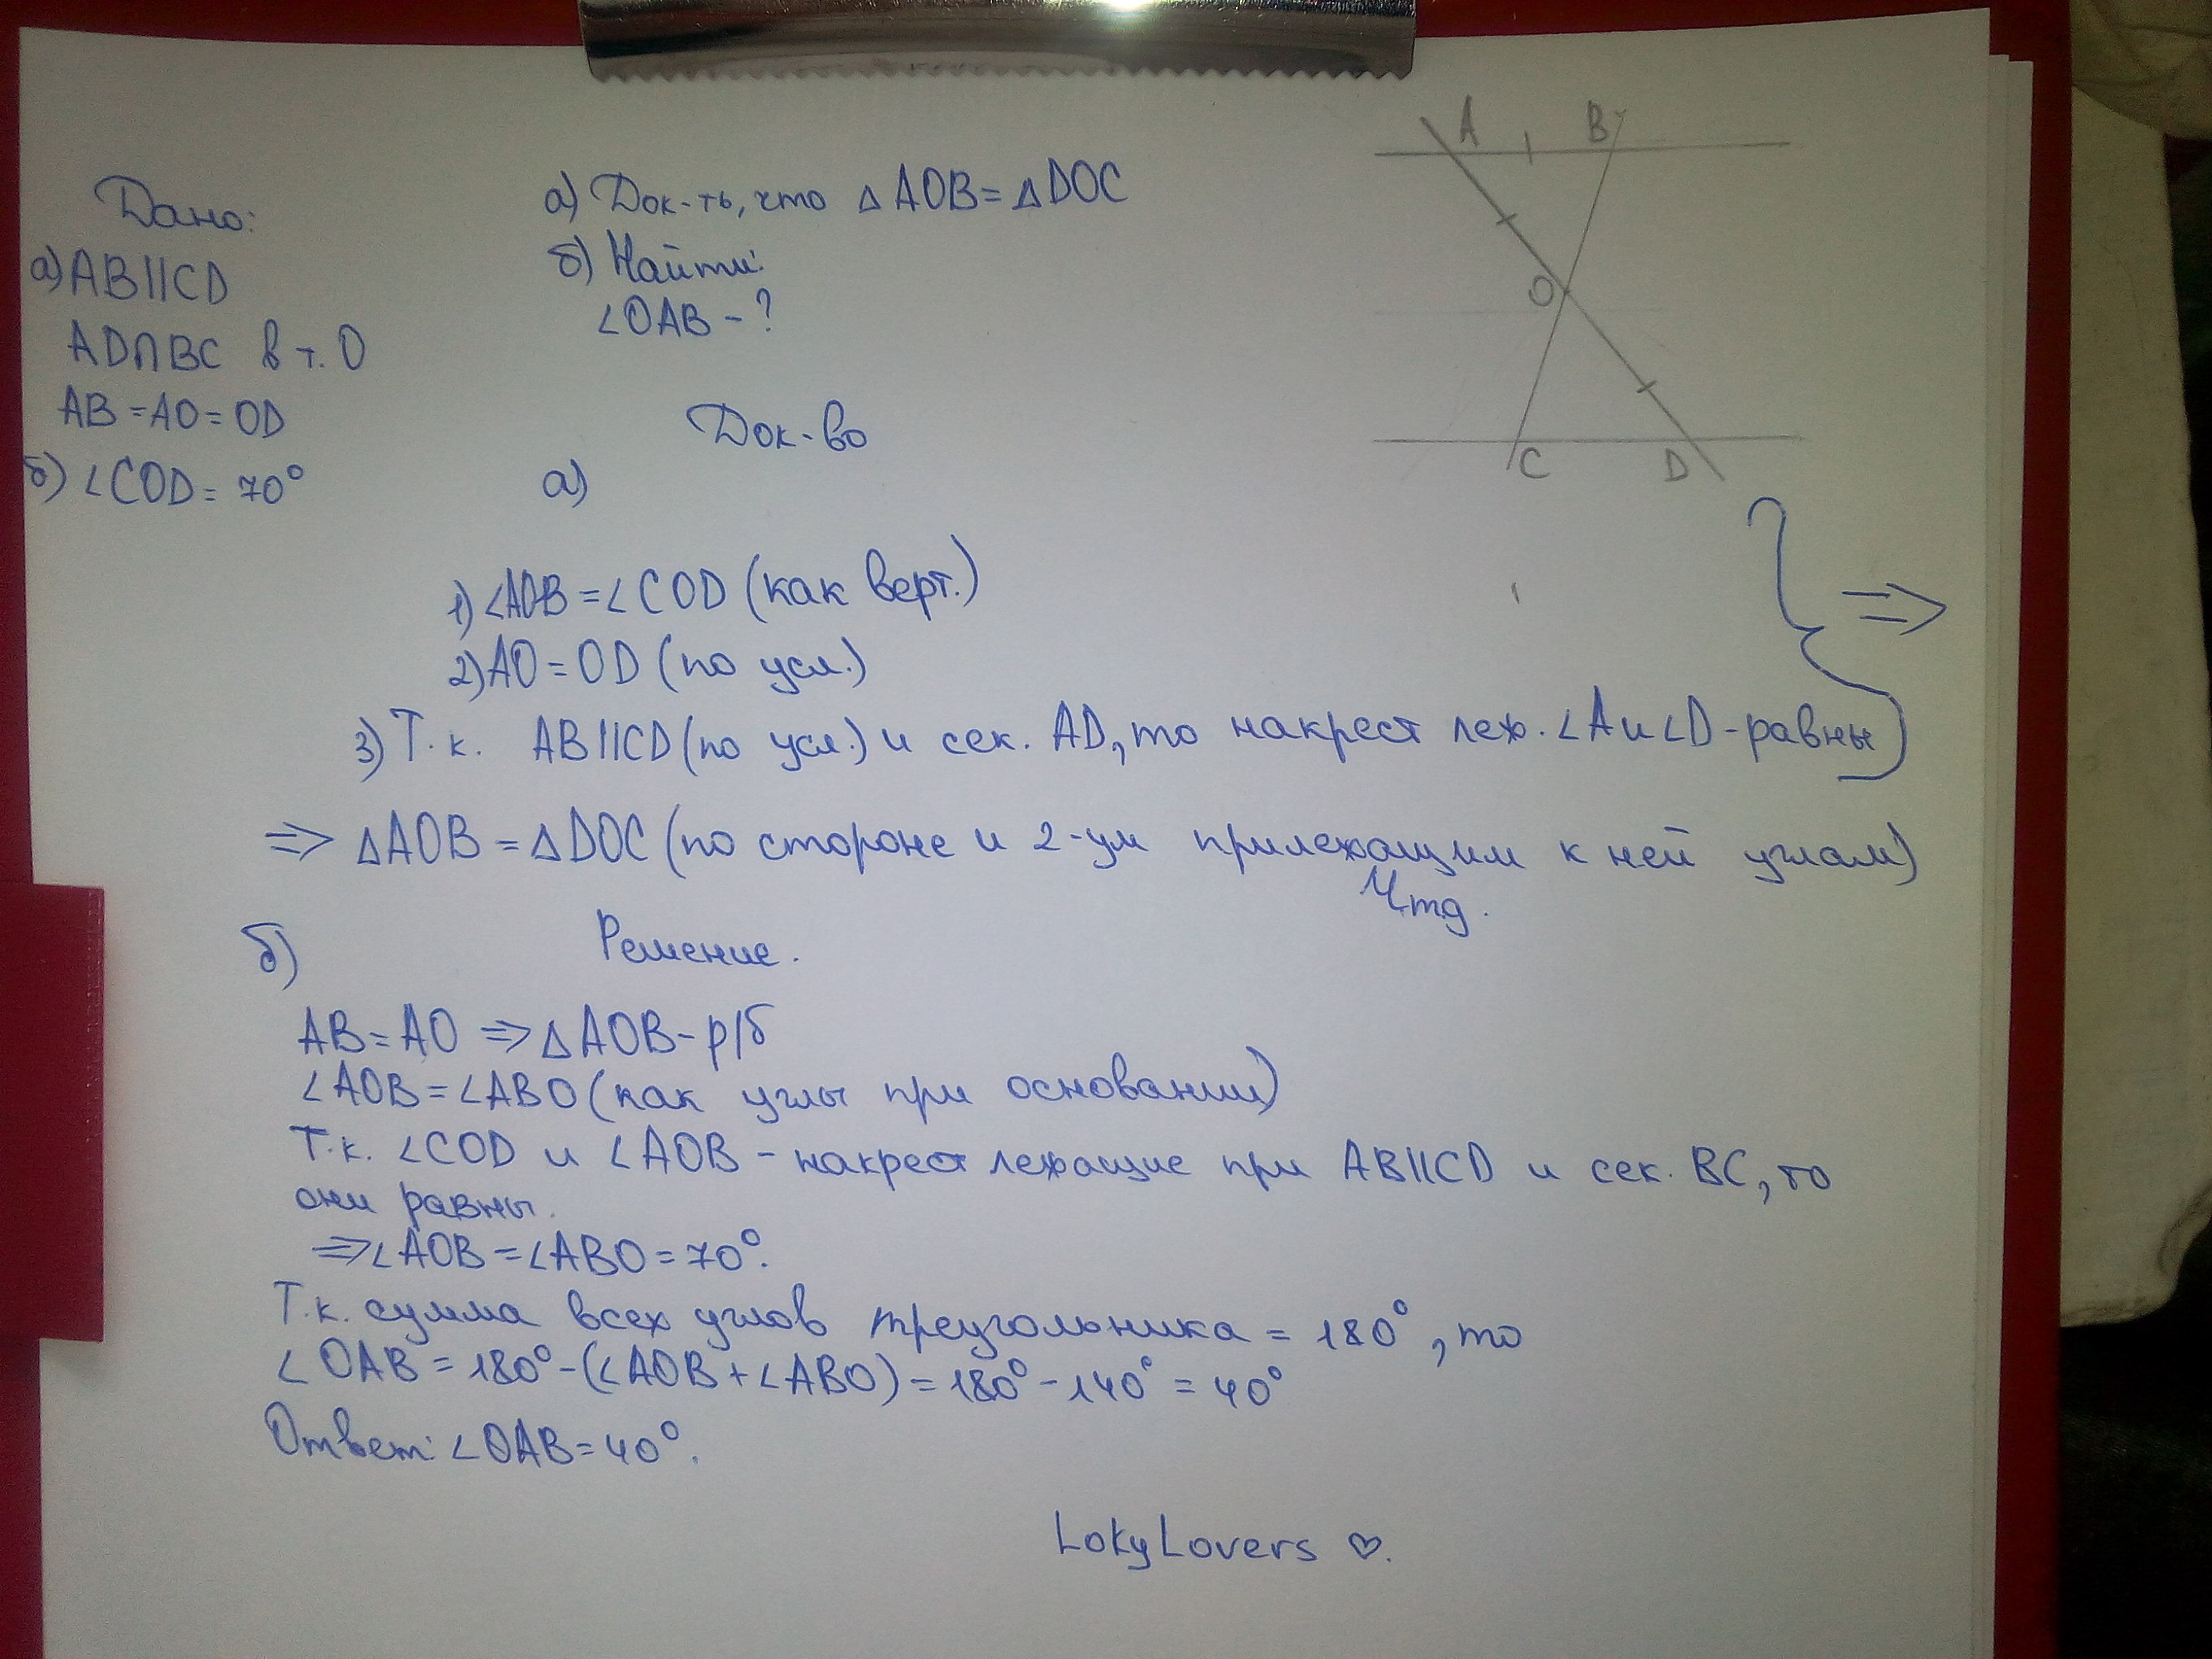 Дано:
а) AB||CD
AD∩BC в т. О
AB = AO = OD
б) ∠COD = 70°
а) Док-ть, что △AOB = △DOC
б) Найти:
∠OAB - ?
A B
O
C D
Док-во
а)
1) ∠AOB = ∠COD (как верт.)
2) AO = OD (по усл.)
3) Т.к. AB||CD (по усл.) и сек. AD, то накрест леж. ∠A и ∠D - равны } ⇒
⇒ △AOB = △DOC (по стороне и 2-ум прилежащим к ней углам)
Чтд.
б) Решение.
AB = AO ⇒ △AOB - р/б
∠AOB = ∠ABO (как углы при основании)
Т.к. ∠COD и ∠AOB - накрест лежащие при AB||CD и сек. BC, то
они равны.
⇒ ∠AOB = ∠ABO = 70°.
Т.к. сумма всех углов треугольника = 180°, то
∠OAB = 180° - (∠AOB + ∠ABO) = 180° - 140° = 40°
Ответ: ∠OAB = 40°.
LokyLovers ♡.